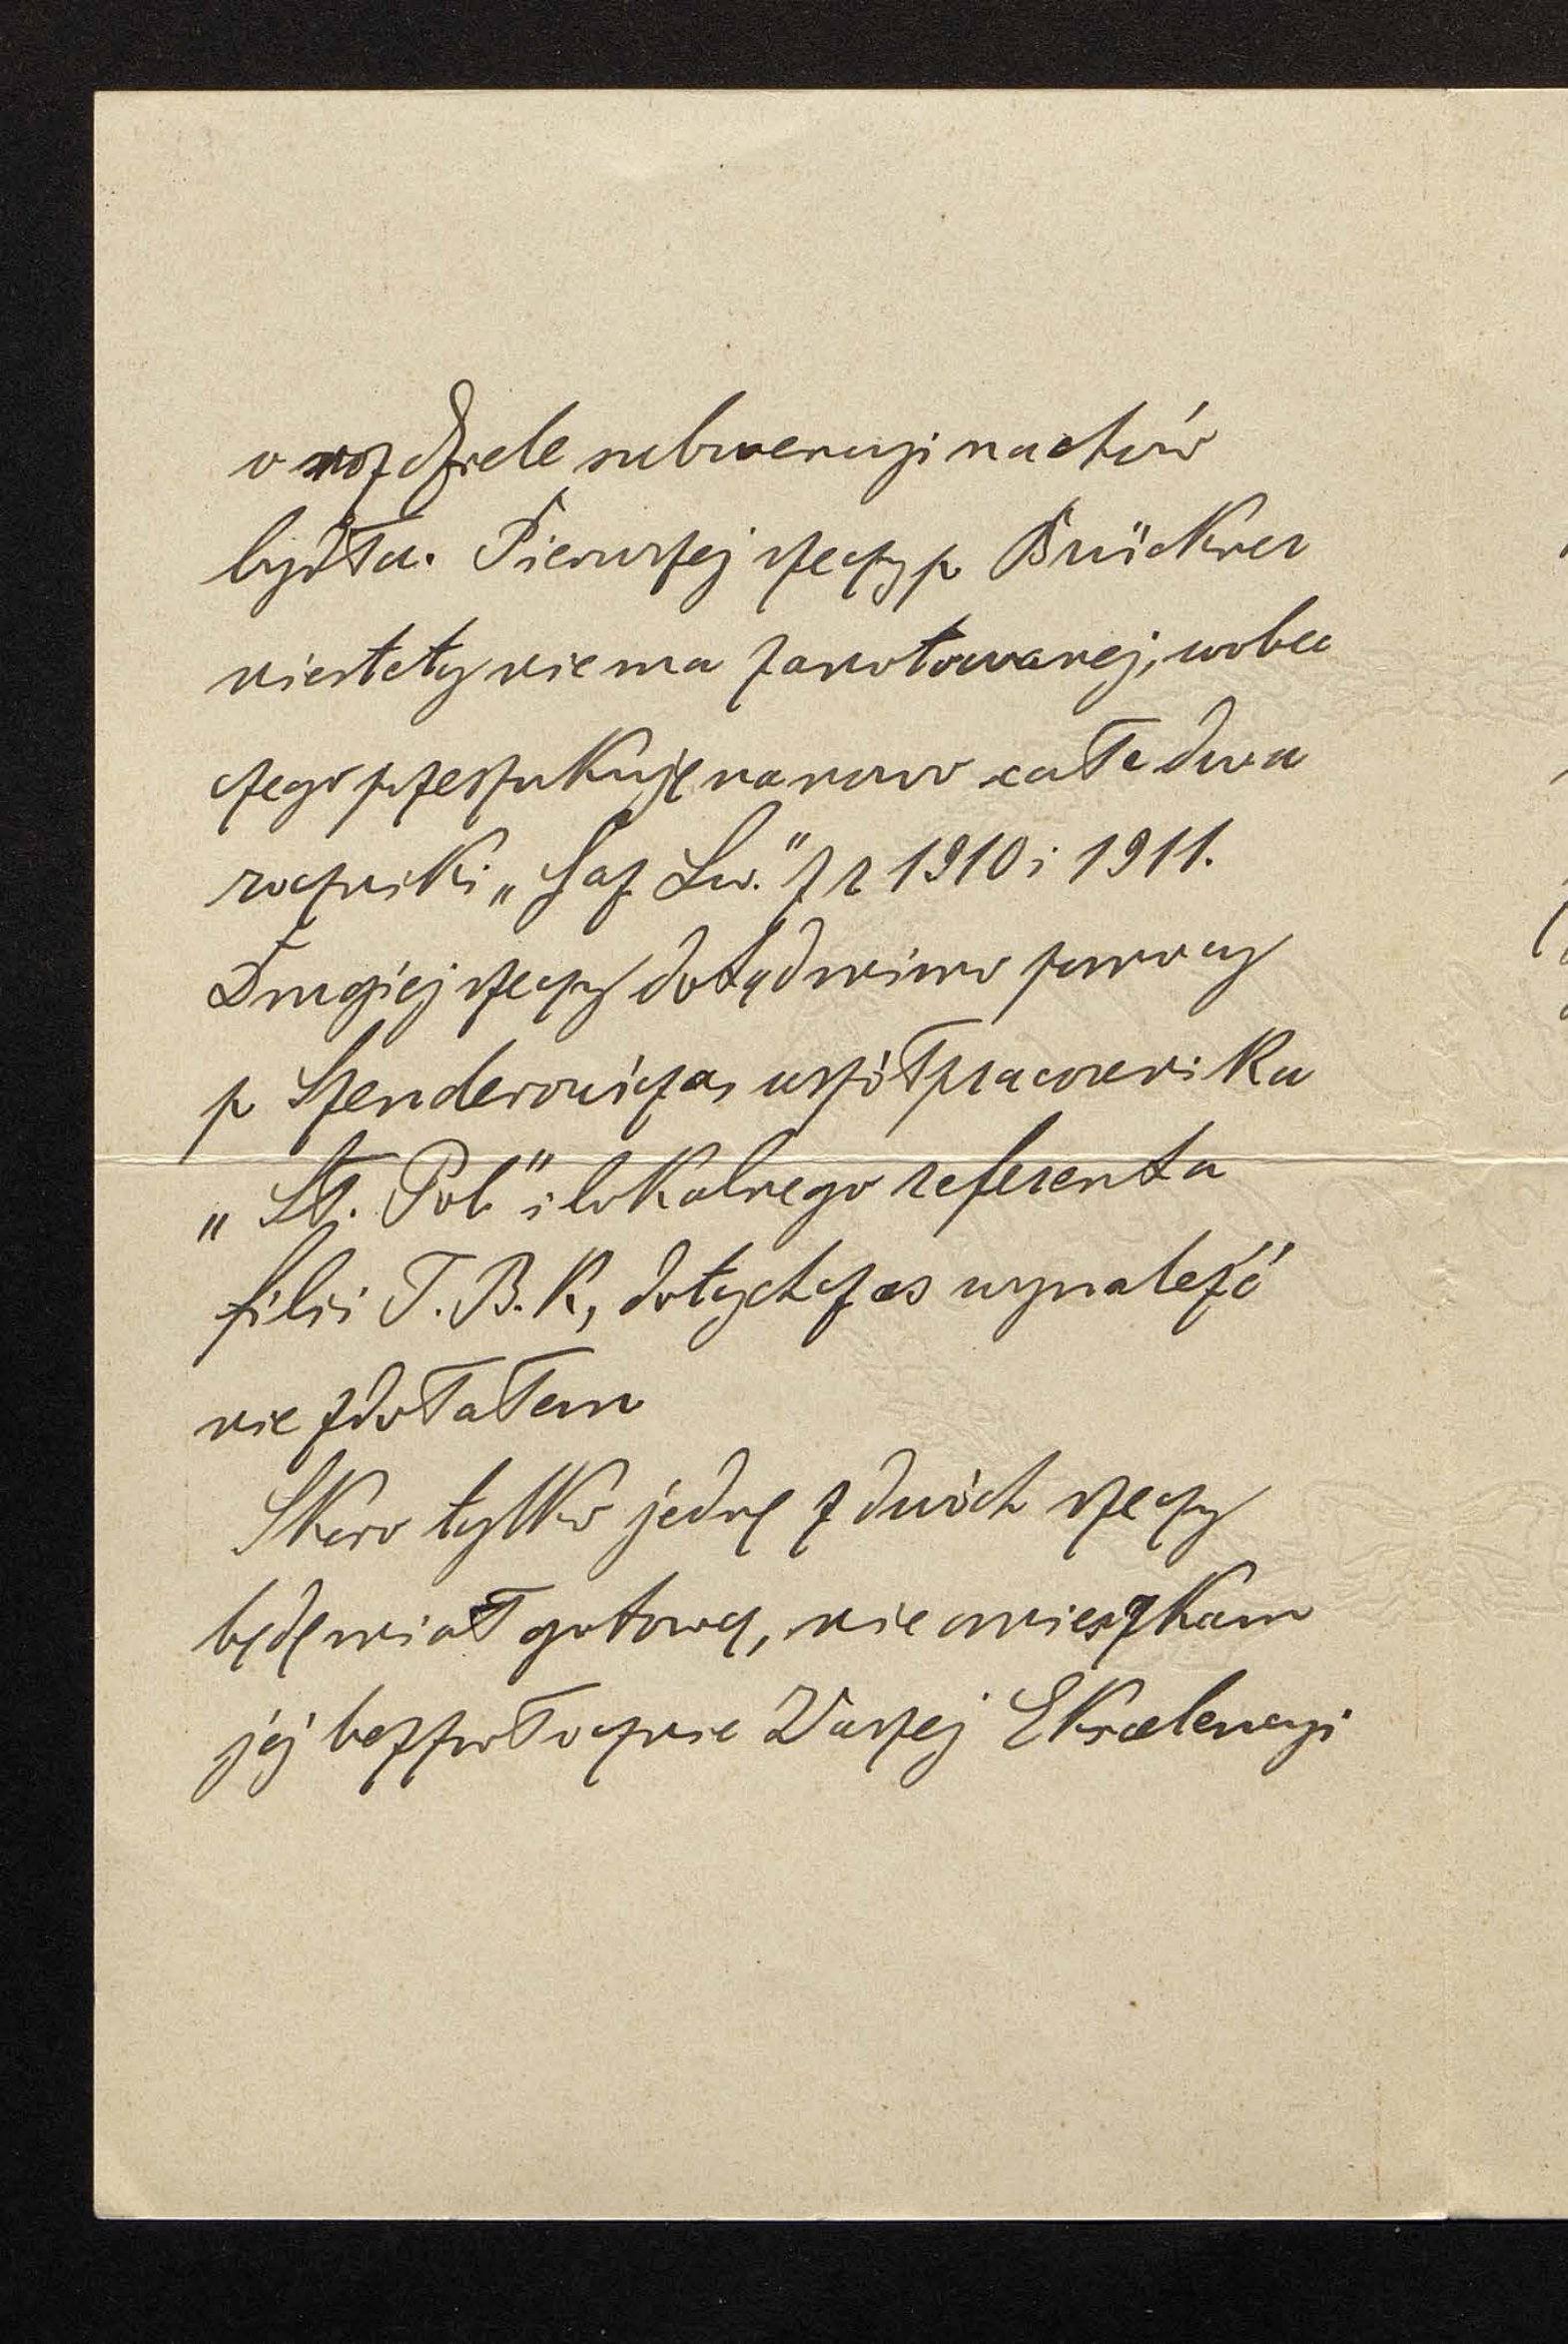 o rozdziele subwencyi na chów
bydła. Pierwszej rzeczy p Brückner
niestety nie ma zanotowanej, wobec
czego przeszukuję na nowo całe dwa
roczniki „Gaz Lw." z r 1910 i 1911.
Drugiej rzeczy dotąd mimo pomocy
p Szenderowicza, współpracownika
„St. Pol." i lokalnego referenta
filii T. B. K, dotychczas wynaleźć
nie zdołałem
Skoro tylko jednę z dwóch rzeczy
będę miał gotowę, nie omieszkam
jej bezzwłocznie Waszej Ekscelencyi